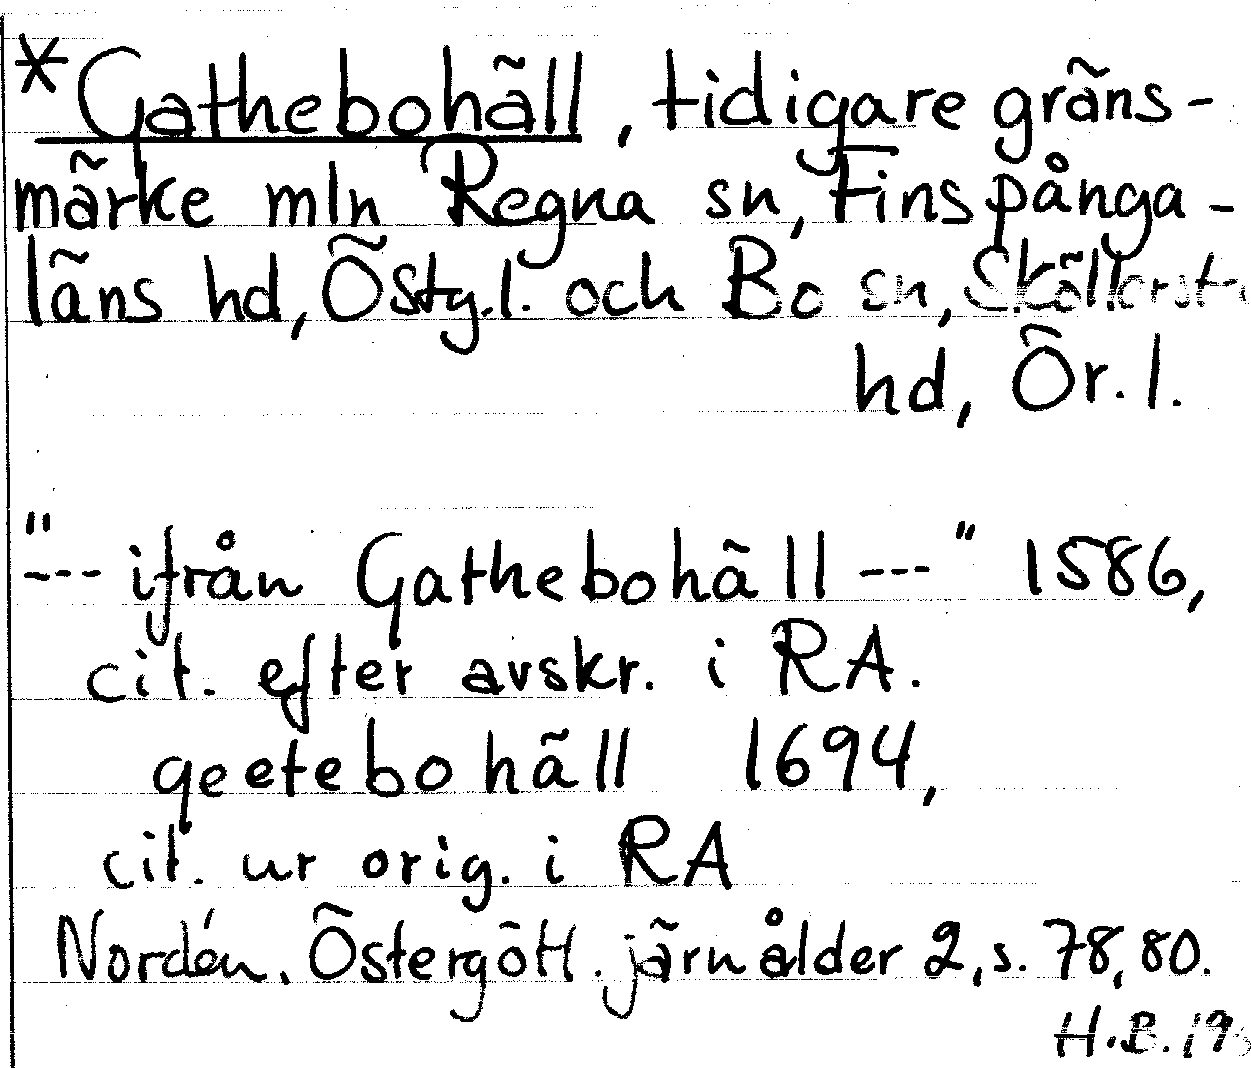 *Gathebohäll, tidigare gräns-
märke mln Regna sn, Finspånga-
läns hd, Östg.l. och Bo sn,
hd, Ör.l.
"--- ifrån Gathebohäll ---" 1586,
cit. efter avskr. i RA.
geetebohäll 1694,
cit. ur orig. i RA
Nordén, Östergötl. järnålder 2, s. 78, 80.
H.B.